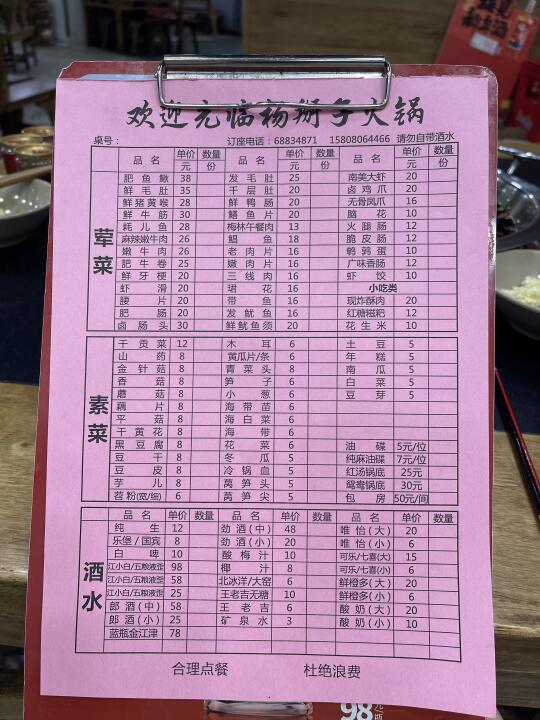 欢迎光临杨掰子火锅
桌号： 订座电话：68834871 15808064466 请勿自带酒水
荤菜
品名 单价 数量 品名 单价 数量 品名 单价 数量
元 份 元 份 元 份
肥鱼鳅 38 发毛肚 25 南美大虾 20
鲜毛肚 35 千层肚 20 卤鸡爪 20
鲜猪黄喉 28 鲜鸭肠 20 无骨凤爪 16
鲜牛筋 30 鳝鱼片 20 脑花 10
耗儿鱼 28 梅林午餐肉 13 火腿肠 12
麻辣嫩牛肉 26 鲳鱼 18 脆皮肠 12
嫩牛肉 26 老肉片 16 鹌鹑蛋 10
肥牛卷 25 嫩肉片 16 广味香肠 12
鲜牙梗 20 三线肉 16 虾饺 10
虾滑 20 珺花 16 小吃类
腰片 20 带鱼 16 现炸酥肉 20
肥肠 20 发鱿鱼 16 红糖糍粑 12
卤肠头 30 鲜鱿鱼须 20 花生米 10
素菜
干贡菜 12 木耳 6 土豆 5
山药 8 黄瓜片/条 6 年糕 5
金针菇 8 青菜头 8 南瓜 5
香菇 8 笋子 6 白菜 5
蘑菇 8 小葱 6 豆芽 5
藕片 8 海带苗 6
平菇 8 海白菜 6
干黄花 8 海带 6
黑豆腐 8 花菜 6 油碟 5元/位
豆干 8 冬瓜 5 纯麻油碟 7元/位
豆皮 8 冷锅血 5 红汤锅底 25元
芋儿 8 莴笋头 5 鸳鸯锅底 30元
苕粉(宽/细) 6 莴笋尖 5 包房 50元/间
酒水
品名 单价 数量 品名 单价 数量 品名 单价 数量
纯生 12 劲酒(中) 48 唯怡(大) 20
乐堡/国宾 8 劲酒(小) 20 唯怡(小) 6
白啤 10 酸梅汁 10 可乐/七喜(大) 15
江小白/五粮液歪 98 椰汁 8 可乐/七喜(小) 6
江小白/五粮液歪 58 北冰洋/大窑 6 鲜橙多(大) 20
江小白/五粮液歪 25 王老吉无糖 10 鲜橙多(小) 6
郎酒(中) 58 王老吉 6 酸奶(大) 20
郎酒(小) 25 矿泉水 3 酸奶(小) 10
蓝瓶金江津 78
合理点餐 杜绝浪费
98